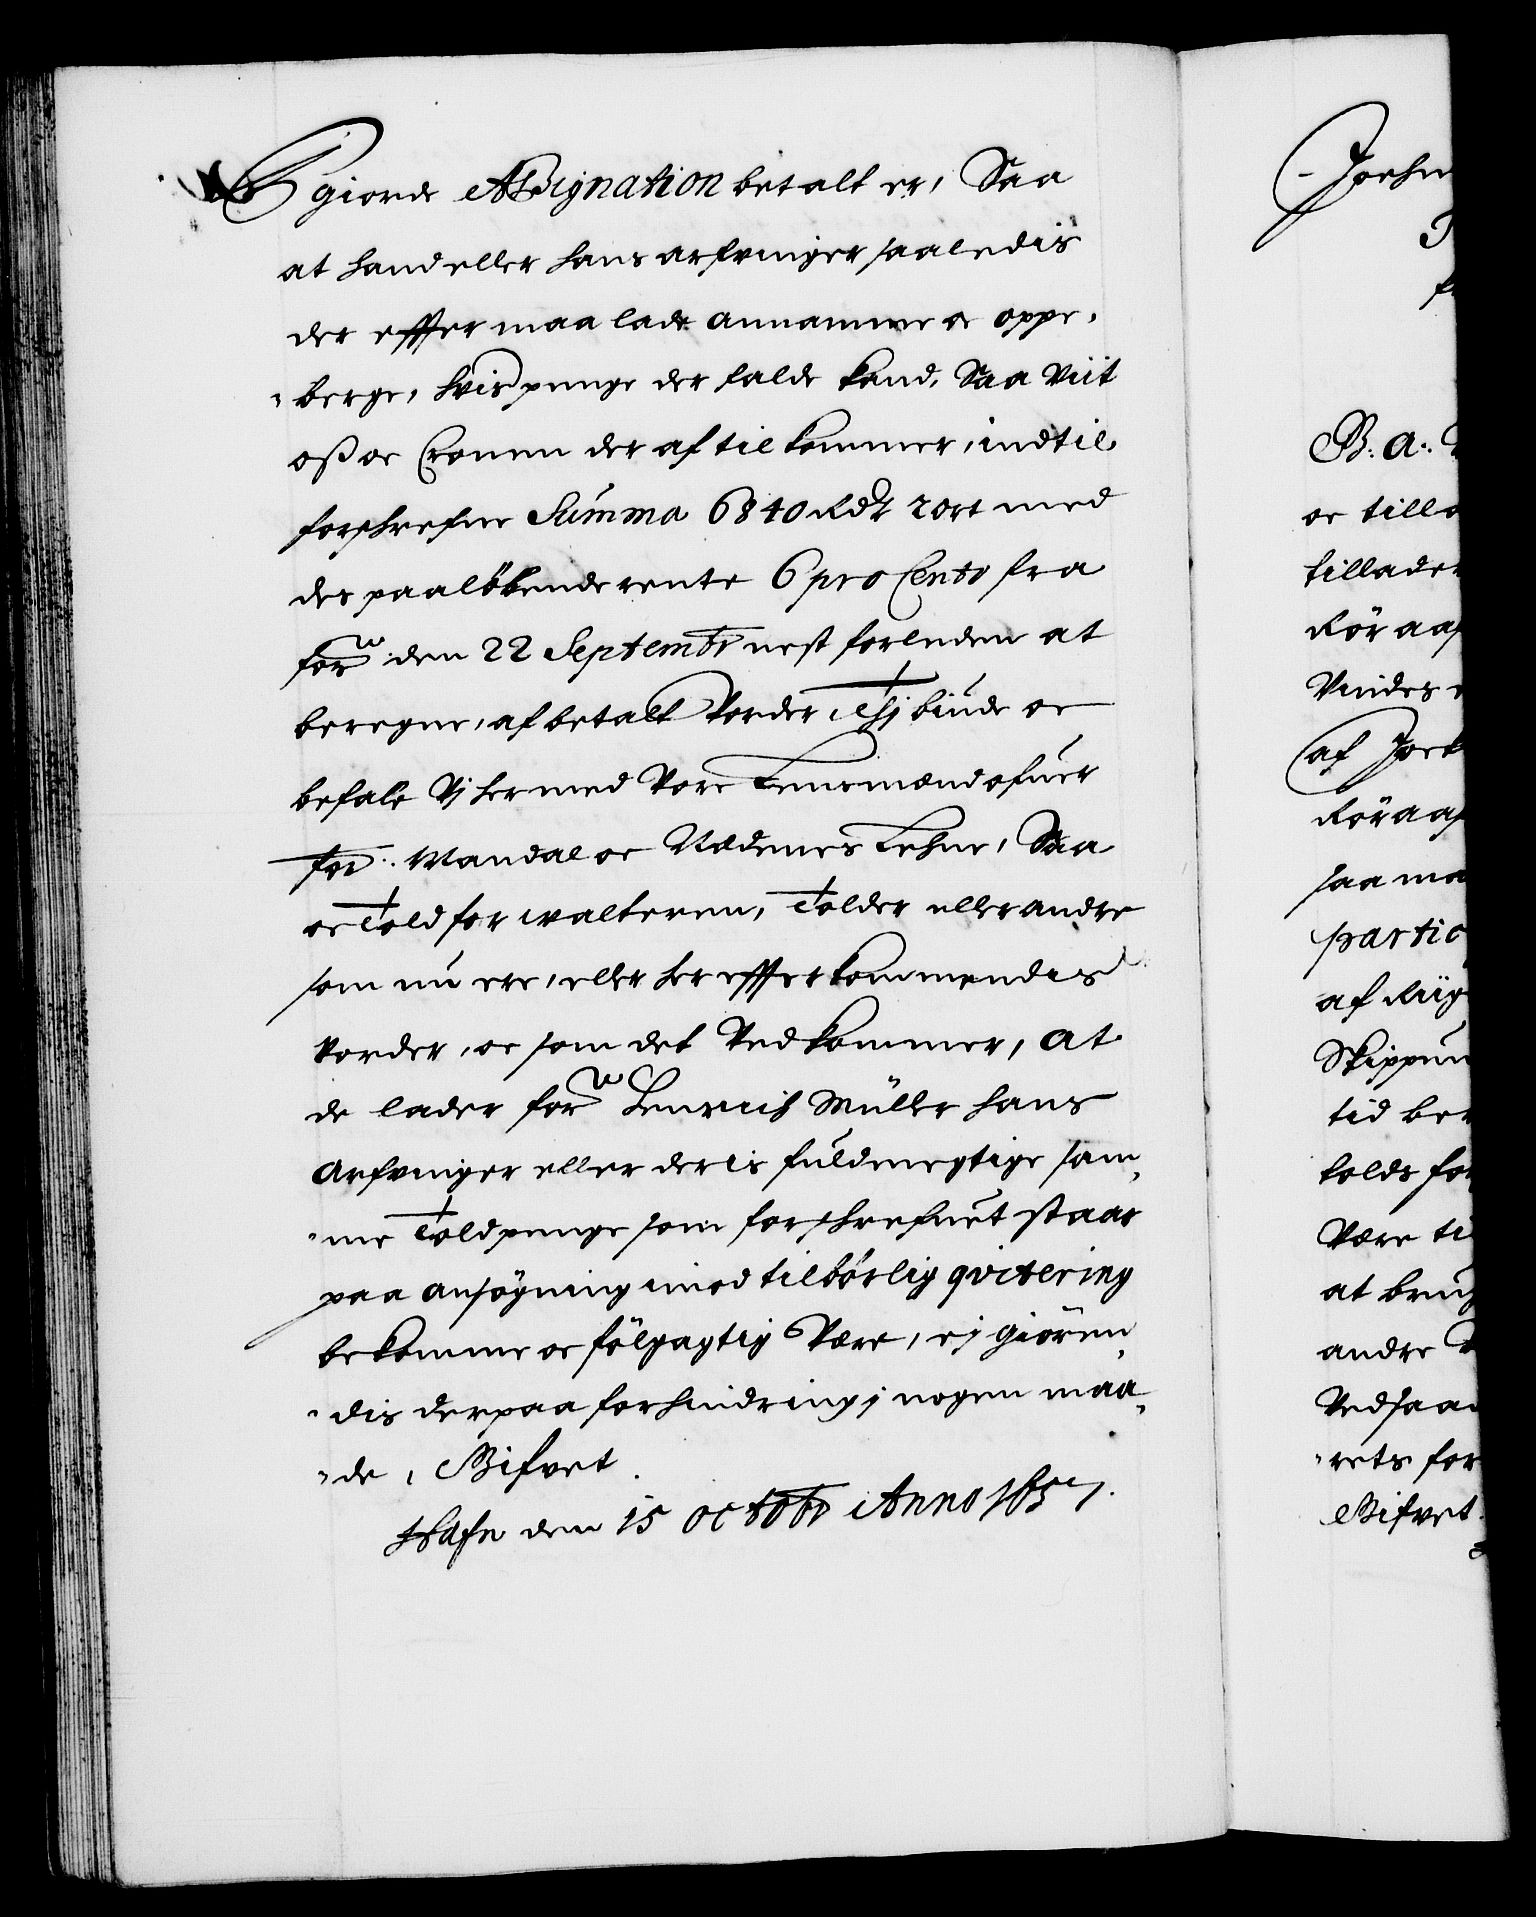 giorde Assignation betalt er, Saa
at hand eller hans arfvinger saaledis
der effter maa lade annamme oc oppe,
berge, hvis penge der falde kand, Saa viit
oss oc Cronen der af tilkommer, indtil
forschrefne Summa 6840 Rdr 2 ort med
des paaløbende rente 6 pro Cento fra
for: den 22 Septembr nest forleden at
beregne, afbetalt vorder, Thj biude oc
befale Vj hermed Vore Lensmænd ofuer
for: Mandal oc Nedenes Lehne, Saa
oc Toldforwalteren, Tolder eller andre
som nu ere, eller her effter kommendes
vorder, oc som det Vedkommer, at
de lader for: Henrich Müller hans
Arfvinger eller deris fuldmegtige sam,
me Toldpenge som forschrefuet staar
paa ansøgning imod tilbørlig qvitering
bekomme oc følgagtig Være, ej giøren,
dis derpaa forhindring j nogen maa,
de, Bifvet.
Hafn den 15 octobr Anno 1657.
B. a:
oc till
tillader
Rør aaf
Vindes
af Joch
Røraaf
saa ma
partic
af Riig
Skippun
tid ber
tolds for
Være ti
at brug
andre
Ved saa
rets for
Bifvet.